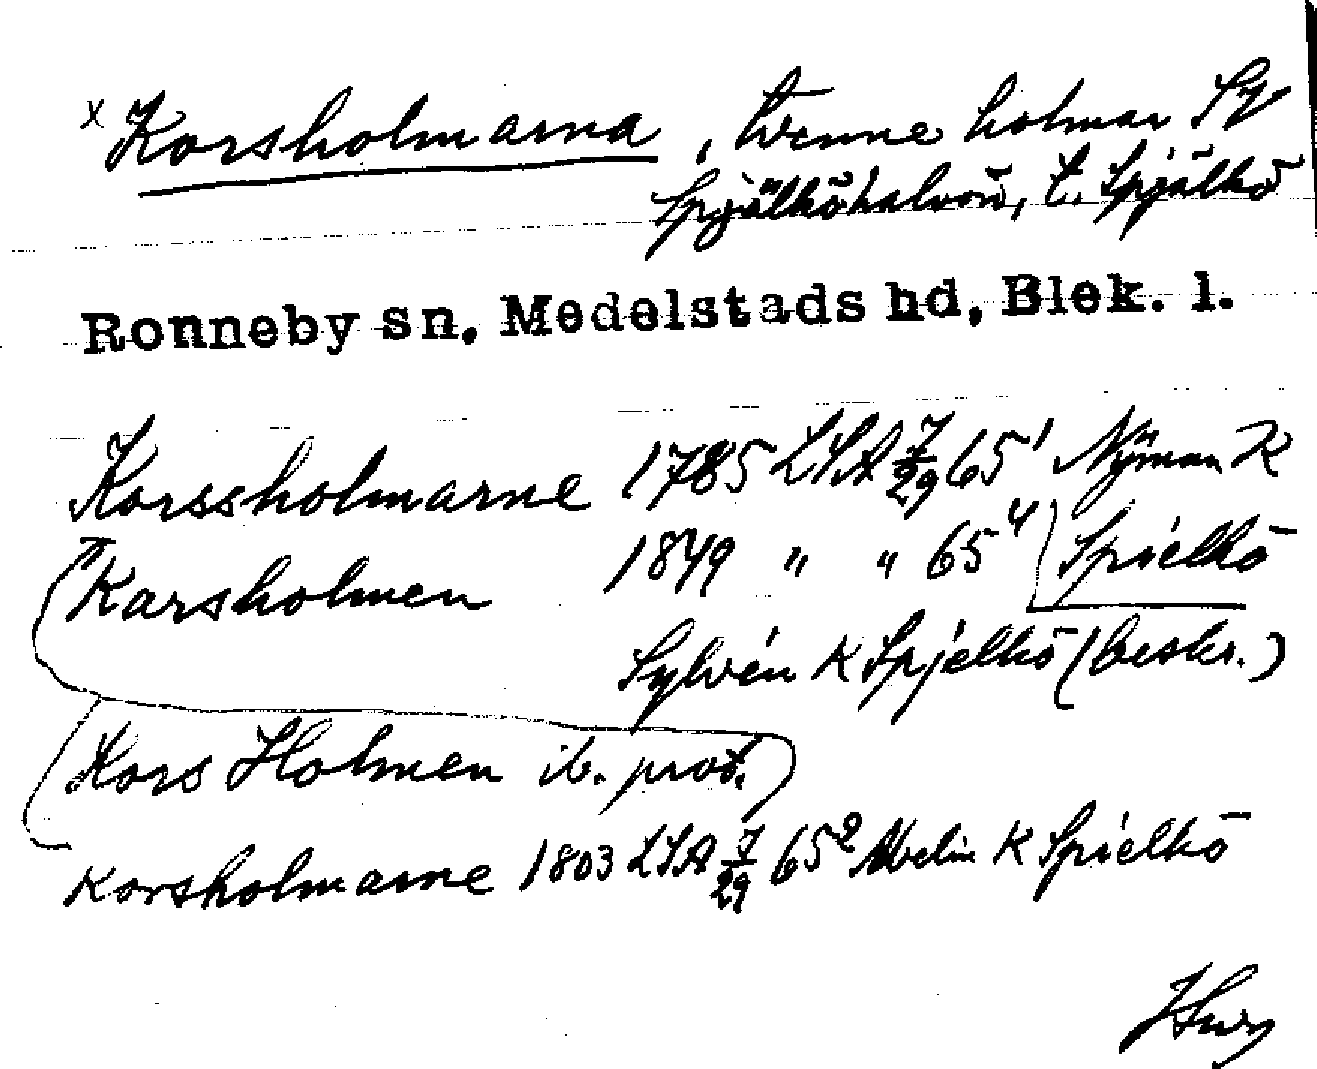 x Korsholmarna, tvenne holmar SV
Spjälköhalvön, t. Spjälkö
Ronneby sn, Medelstads hd, Blek. l.
Korssholmarne 1785 LSA 7/29 65¹ Nÿman K
Karsholmen 1849 " " 65⁴ Spielkö
Sylvén K Spjelkö (beskr.)
Kors Holmen ib. prot.)
Korsholmarne 1803 LSA 7/29 65² Melin K Spielkö